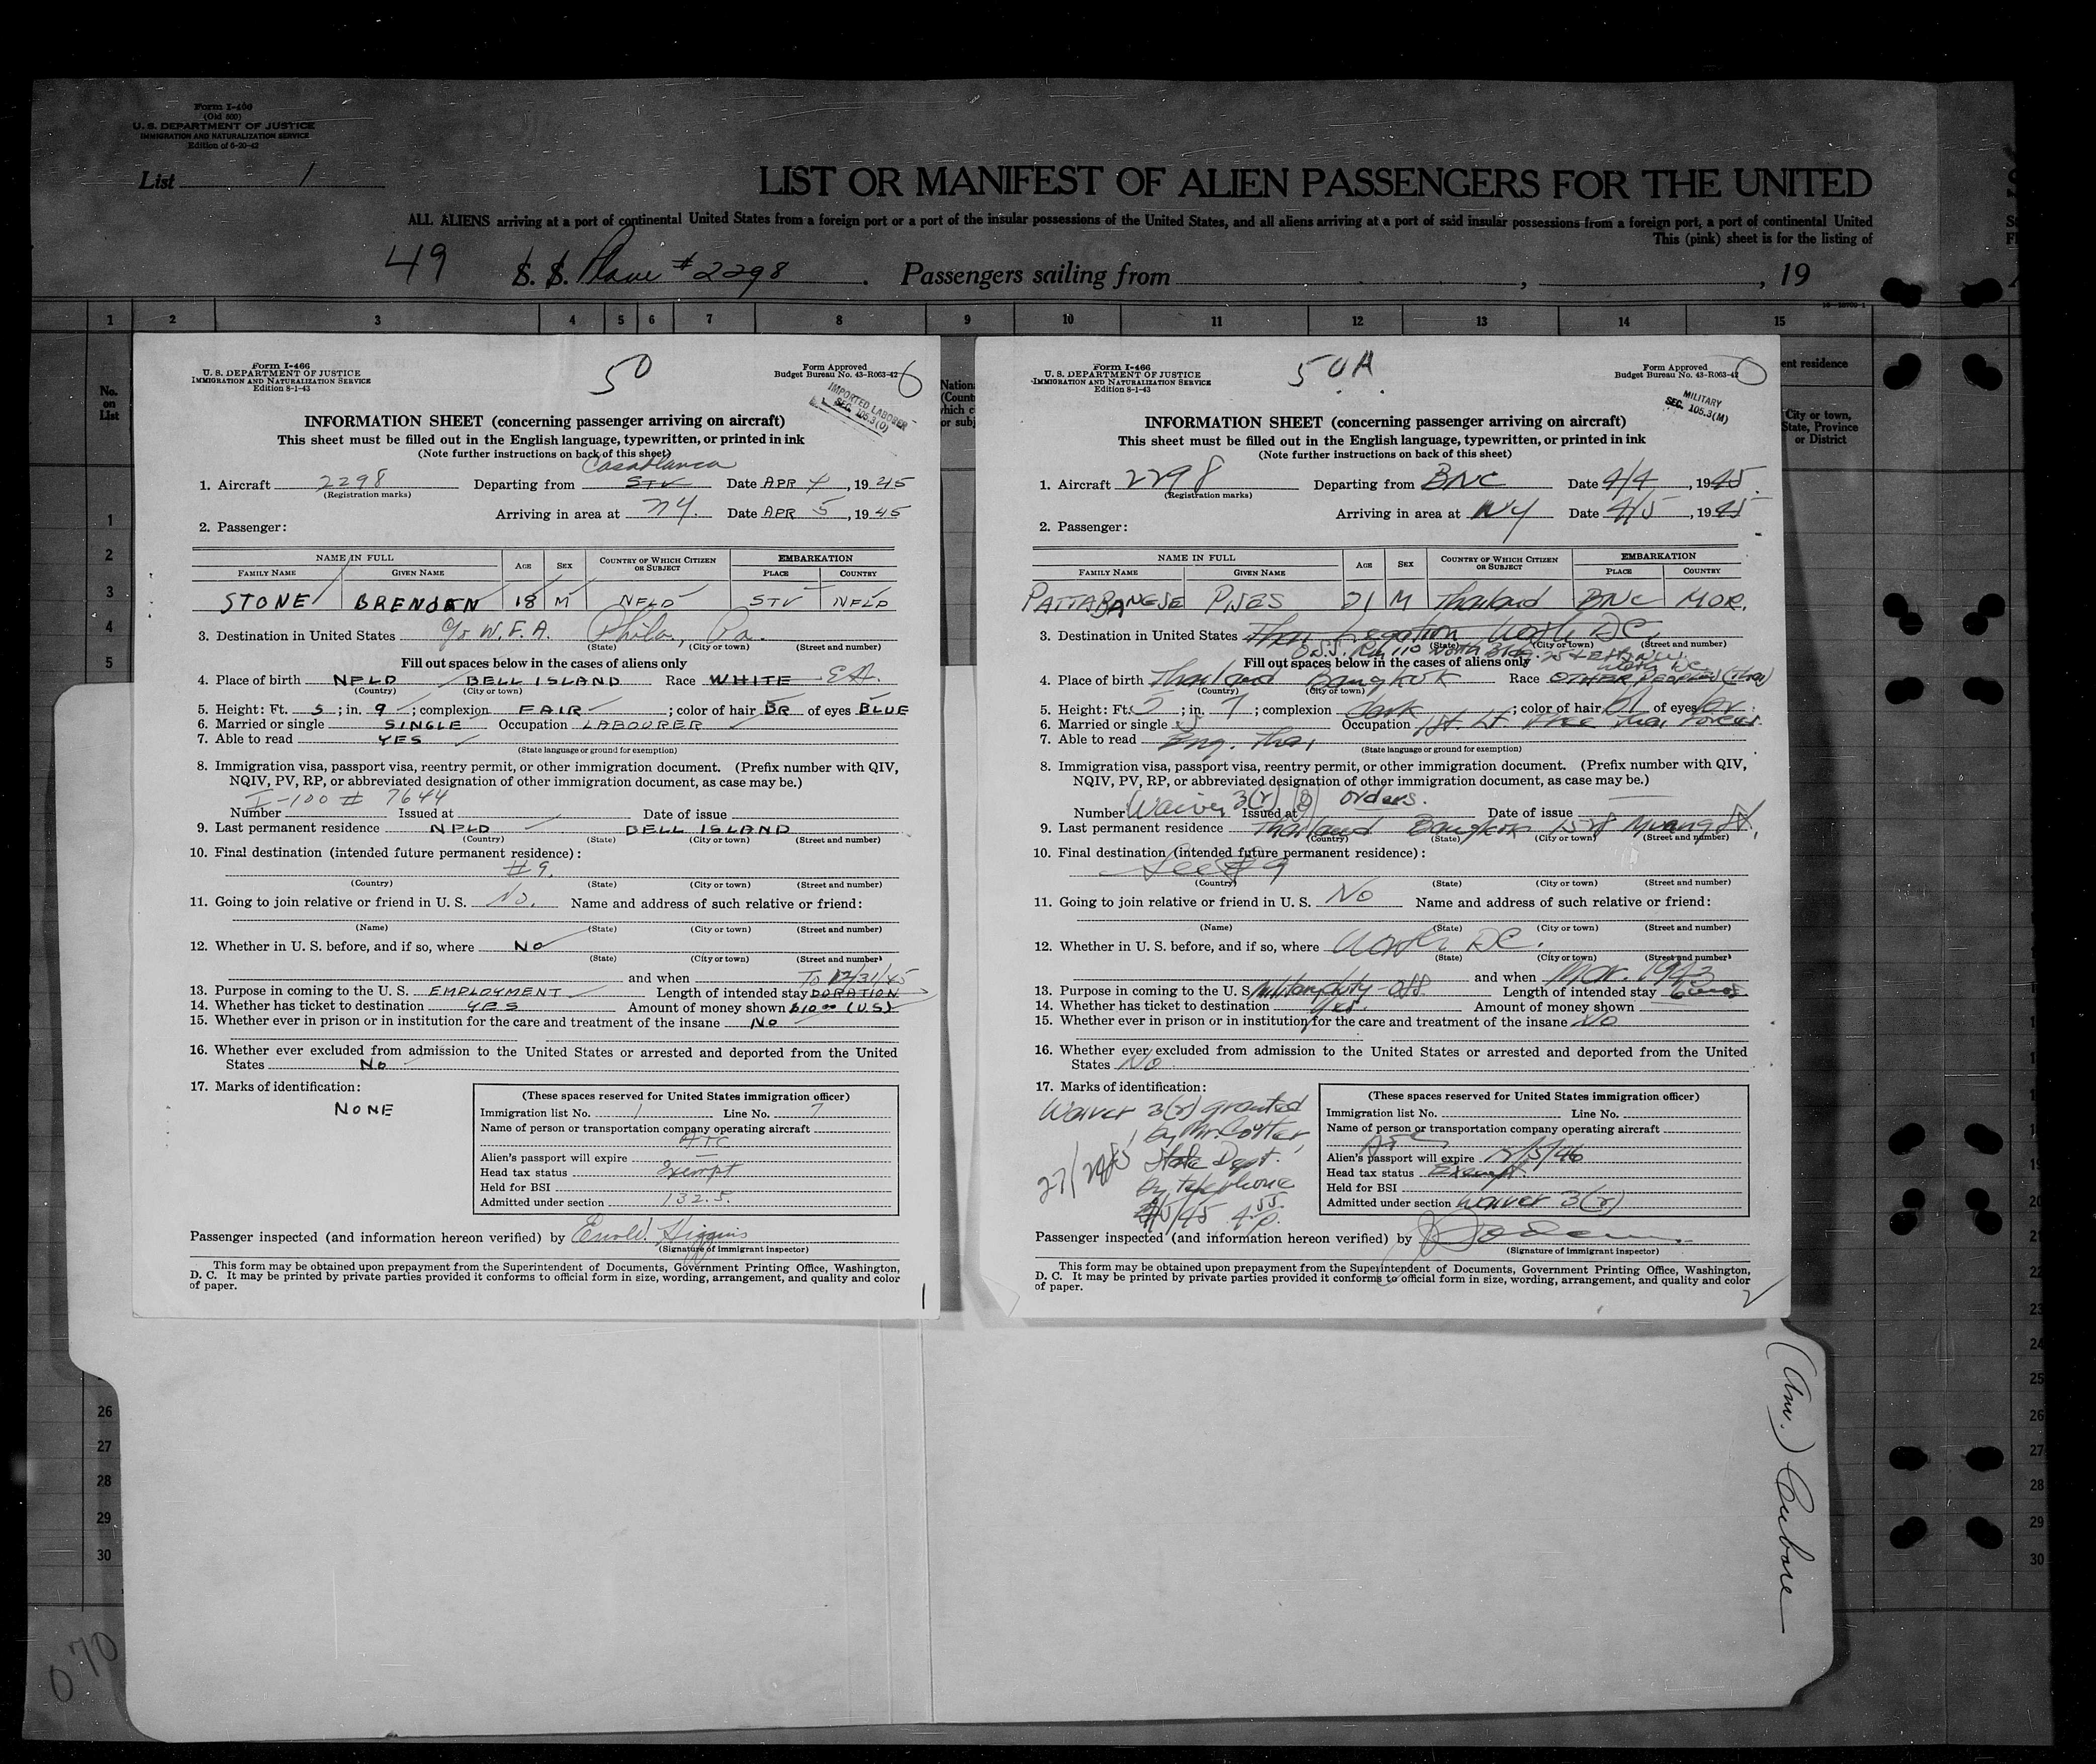 Form I-466
(Old 500)
U. S. DEPARTMENT OF JUSTICE
IMMIGRATION AND NATURALIZATION SERVICE
Edition of 6-20-42
List 1
LIST OR MANIFEST OF ALIEN PASSENGERS FOR THE UNITED
ALL ALIENS arriving at a port of continental United States from a foreign port or a port of the insular possessions of the United States, and all aliens arriving at a port of said insular possessions from a foreign port, a port of continental United
This (pink) sheet is for the listing of
49 S. S. Plane #2298. Passengers sailing from , , 19
1 2 3 4 5 6 7 8 9 10 11 12 13 14 15
No. on List
Form I-466
U. S. DEPARTMENT OF JUSTICE
IMMIGRATION AND NATURALIZATION SERVICE
Edition 8-1-43
50
Form Approved
Budget Bureau No. 43-R063-42
IMPORTED LABORER
SEC. 105.3(O)
INFORMATION SHEET (concerning passenger arriving on aircraft)
This sheet must be filled out in the English language, typewritten, or printed in ink
(Note further instructions on back of this sheet)
Casablanca
1. Aircraft 2298 Departing from STV Date APR 4, 1945
(Registration marks)
Arriving in area at NY. Date APR 5, 1945
2. Passenger:
NAME IN FULL AGE SEX COUNTRY OF WHICH CITIZEN OR SUBJECT EMBARKATION
FAMILY NAME GIVEN NAME PLACE COUNTRY
STONE BRENDEN 18 M NFLD STV NFLD
3. Destination in United States c/o W.F.A. Phila, Pa.
(State) (City or town) (Street and number)
Fill out spaces below in the cases of aliens only
4. Place of birth NFLD BELL ISLAND Race WHITE
(Country) (City or town)
5. Height: Ft. 5; in. 9; complexion FAIR; color of hair BR of eyes BLUE
6. Married or single SINGLE Occupation LABOURER
7. Able to read YES
(State language or ground for exemption)
8. Immigration visa, passport visa, reentry permit, or other immigration document. (Prefix number with QIV,
NQIV, PV, RP, or abbreviated designation of other immigration document, as case may be.)
I-100 # 7644
Number Issued at Date of issue
9. Last permanent residence NFLD BELL ISLAND
(Country) (State) (City or town) (Street and number)
10. Final destination (intended future permanent residence):
#9.
(Country) (State) (City or town) (Street and number)
11. Going to join relative or friend in U. S. No. Name and address of such relative or friend:
(Name) (State) (City or town) (Street and number)
12. Whether in U. S. before, and if so, where No
(State) (City or town) (Street and number)
and when To 12/31/45
13. Purpose in coming to the U. S. EMPLOYMENT Length of intended stay DURATION
14. Whether has ticket to destination YES Amount of money shown $10.00 (US)
15. Whether ever in prison or in institution for the care and treatment of the insane No
16. Whether ever excluded from admission to the United States or arrested and deported from the United
States No
17. Marks of identification:
NONE
(These spaces reserved for United States immigration officer)
Immigration list No. 1 Line No. 7
Name of person or transportation company operating aircraft
ATC
Alien's passport will expire —
Head tax status Exempt
Held for BSI
Admitted under section 132.5.
Passenger inspected (and information hereon verified) by Higgins
(Signature of immigrant inspector)
This form may be obtained upon prepayment from the Superintendent of Documents, Government Printing Office, Washington,
D. C. It may be printed by private parties provided it conforms to official form in size, wording, arrangement, and quality and color
of paper.
1
Form I-466
U. S. DEPARTMENT OF JUSTICE
IMMIGRATION AND NATURALIZATION SERVICE
Edition 8-1-43
50A
Form Approved
Budget Bureau No. 43-R063-42
MILITARY
SEC. 105.3(M)
INFORMATION SHEET (concerning passenger arriving on aircraft)
This sheet must be filled out in the English language, typewritten, or printed in ink
(Note further instructions on back of this sheet)
1. Aircraft 2298 Departing from BNC Date 4/4, 1945.
(Registration marks)
Arriving in area at NY Date 4/5, 1945
2. Passenger:
NAME IN FULL AGE SEX COUNTRY OF WHICH CITIZEN OR SUBJECT EMBARKATION
FAMILY NAME GIVEN NAME PLACE COUNTRY
PATTABANGESE PISES 21 M Thailand BNC MOR.
3. Destination in United States Thai Legation Wash DC.
(State) (City or town) (Street and number)
O.S.S. Rm 110 North Bldg. 25 & E St. N.W. Wash DC.
Fill out spaces below in the cases of aliens only
4. Place of birth Thailand Bangkok Race OTHER PEOPLES (Thai)
(Country) (City or town)
5. Height: Ft. 5; in. 7; complexion dark; color of hair bl of eyes br
6. Married or single S Occupation 1st Lt Free Thai Forces
7. Able to read Eng. Thai
(State language or ground for exemption)
8. Immigration visa, passport visa, reentry permit, or other immigration document. (Prefix number with QIV,
NQIV, PV, RP, or abbreviated designation of other immigration document, as case may be.)
Number Waiver 3(r) Issued at orders. Date of issue —
9. Last permanent residence Thailand Bangkok Muang
(Country) (State) (City or town) (Street and number)
10. Final destination (intended future permanent residence):
See #9
(Country) (State) (City or town) (Street and number)
11. Going to join relative or friend in U. S. No Name and address of such relative or friend:
(Name) (State) (City or town) (Street and number)
12. Whether in U. S. before, and if so, where Wash DC.
(State) (City or town) (Street and number)
and when Mar. 1943
13. Purpose in coming to the U. S. Military duty - Length of intended stay
14. Whether has ticket to destination yes. Amount of money shown
15. Whether ever in prison or in institution for the care and treatment of the insane No
16. Whether ever excluded from admission to the United States or arrested and deported from the United
States No
17. Marks of identification:
Waiver 3(r) granted
by Mr. Cotter
State Dept.
by telephone
4/5/45 4:55 p.
(These spaces reserved for United States immigration officer)
Immigration list No. Line No.
Name of person or transportation company operating aircraft
ATC
Alien's passport will expire
Head tax status Exempt.
Held for BSI
Admitted under section Waiver 3(r)
Passenger inspected (and information hereon verified) by
(Signature of immigrant inspector)
This form may be obtained upon prepayment from the Superintendent of Documents, Government Printing Office, Washington,
D. C. It may be printed by private parties provided it conforms to official form in size, wording, arrangement, and quality and color
of paper.
2
ent residence
City or town,
State, Province
or District
1
2
3
4
5
26
27
28
29
30
070